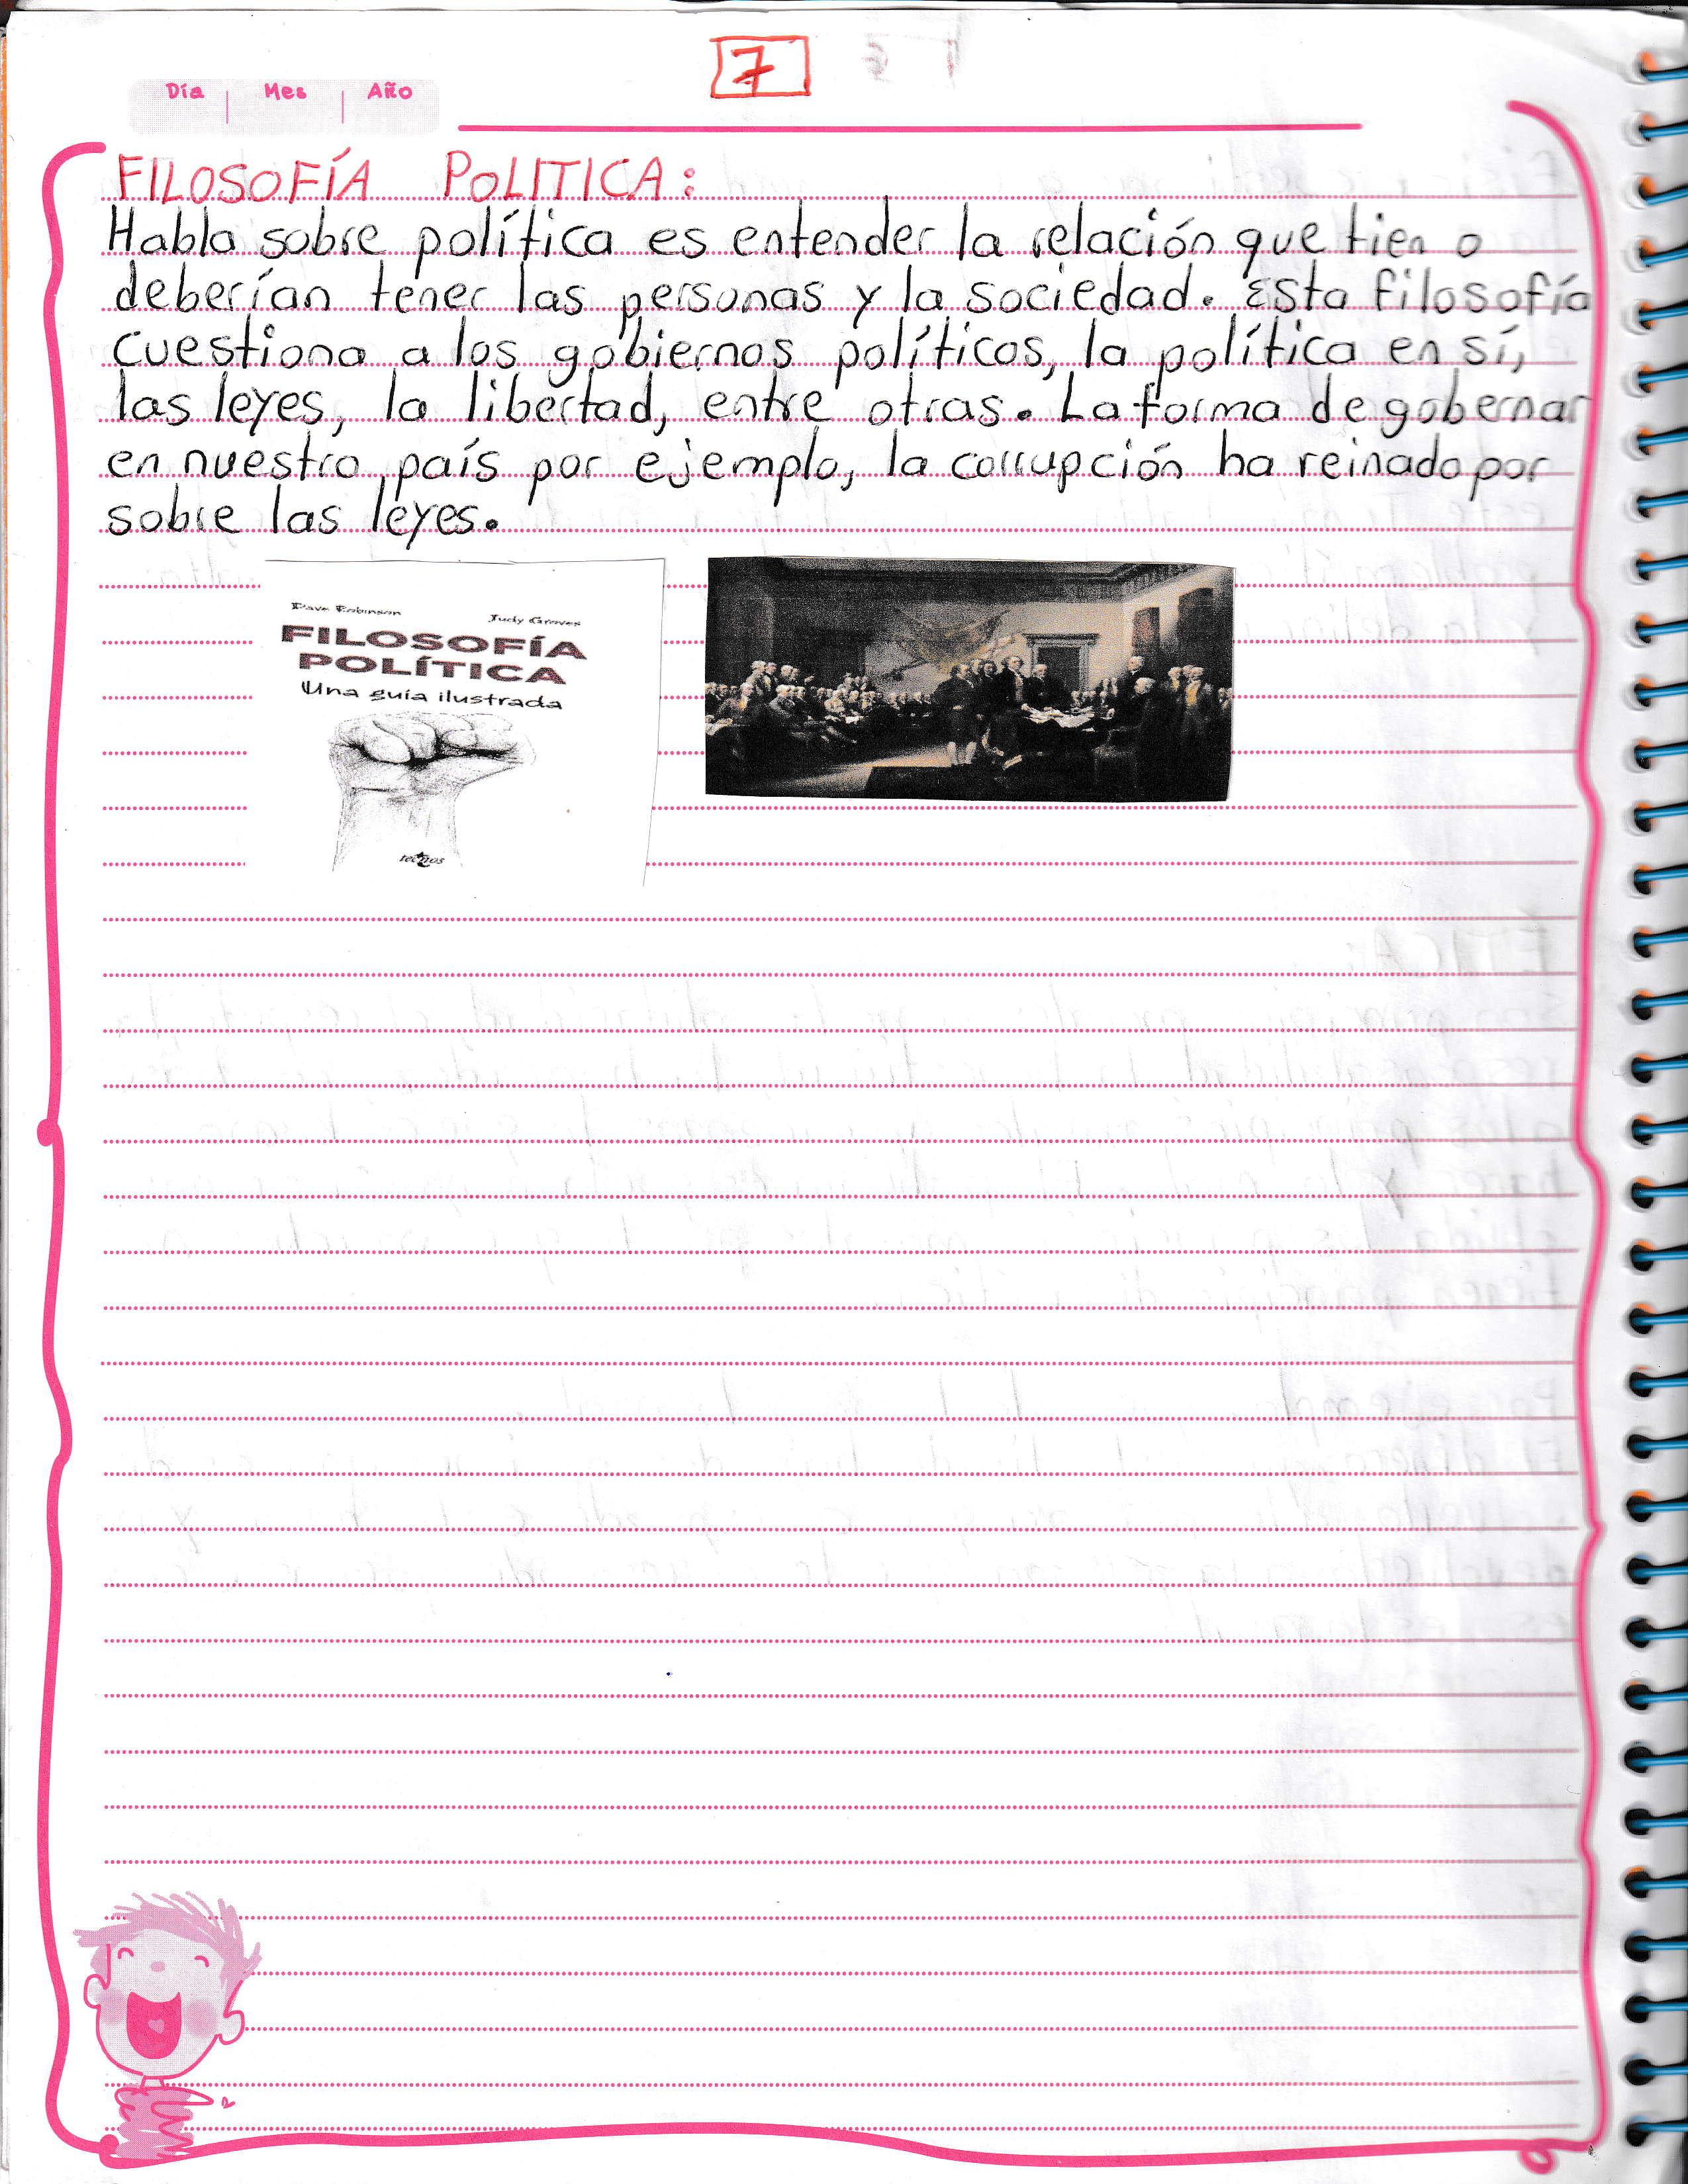 7
Día Mes Año
FILOSOFÍA POLITICA:
Habla sobre política es entender la relación que tien o
deberían tener las personas y la sociedad. Esta filosofía
cuestiona a los gobiernos políticos, la política en sí,
las leyes, la libertad, entre otras. La forma de gobernar
en nuestro país por ejemplo, la corrupción ha reinado por
sobre las leyes.
Dave Robinson Judy Groves
FILOSOFÍA
POLÍTICA
Una guía ilustrada
tecnos